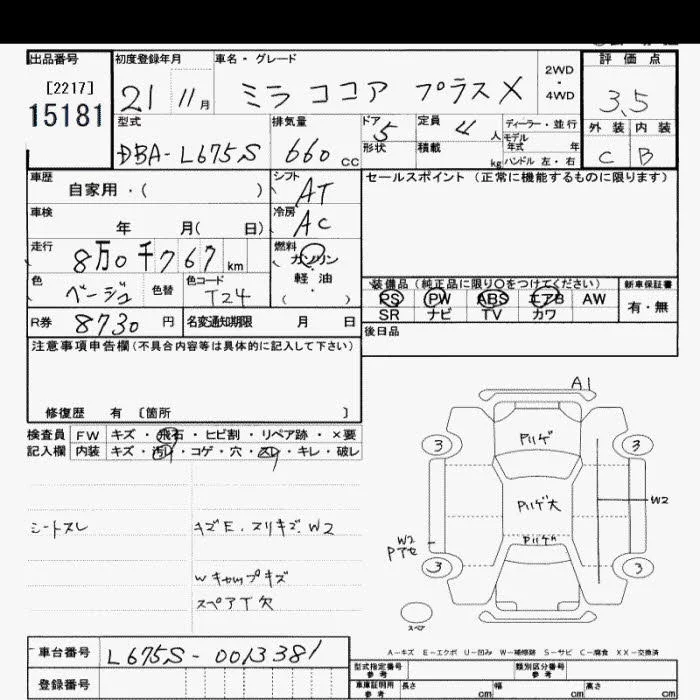 出品番号 初度登録年月 車名・グレード 2WD・4WD 評価点
[2217]
15181
21 11月 ミラ ココア プラスX 3.5
型式 排気量 ドア 5 定員 4人 ディーラー・並行 外装 内装
モデル年式 年
DBA-L675S 660cc 形状 積載 kg ハンドル 左・右 C B
車歴 自家用・( ) シフト AT セールスポイント(正常に機能するものに限ります)
車検 年 月( 日) 冷房 AC
走行 8万0千767km 燃料 ガソリン・軽油・( )
色 ベージュ 色替 色コード T24
装備品(純正品に限り○をつけてください) 新車保証書
PS PW ABS エアB AW 有・無
SR ナビ TV カワ
R券 8730円 名変通知期限 月 日 後日品
注意事項申告欄(不具合内容等は具体的に記入して下さい)
修復歴 有〔箇所 〕
検査員 FW キズ・飛石・ヒビ割・リペア跡・×要
記入欄 内装 キズ・汚レ・コゲ・穴・スレ・キレ・破レ
シートスレ
キズE.スリキズ.W2
Wキャップキズ
スペアT欠
A1
Pハゲ
3 3
Pハゲ大
W2
Pハゲ
W2
Pアセ
3 3
スペア
A-キズ E-エクボ U-凹み W-補修跡 S-サビ C-腐食 XX-交換済
車台番号 L675S-0013381
登録番号
型式指定番号 参考 類別区分番号 参考
車庫証明用 参考 長さ cm 幅 cm 高さ cm